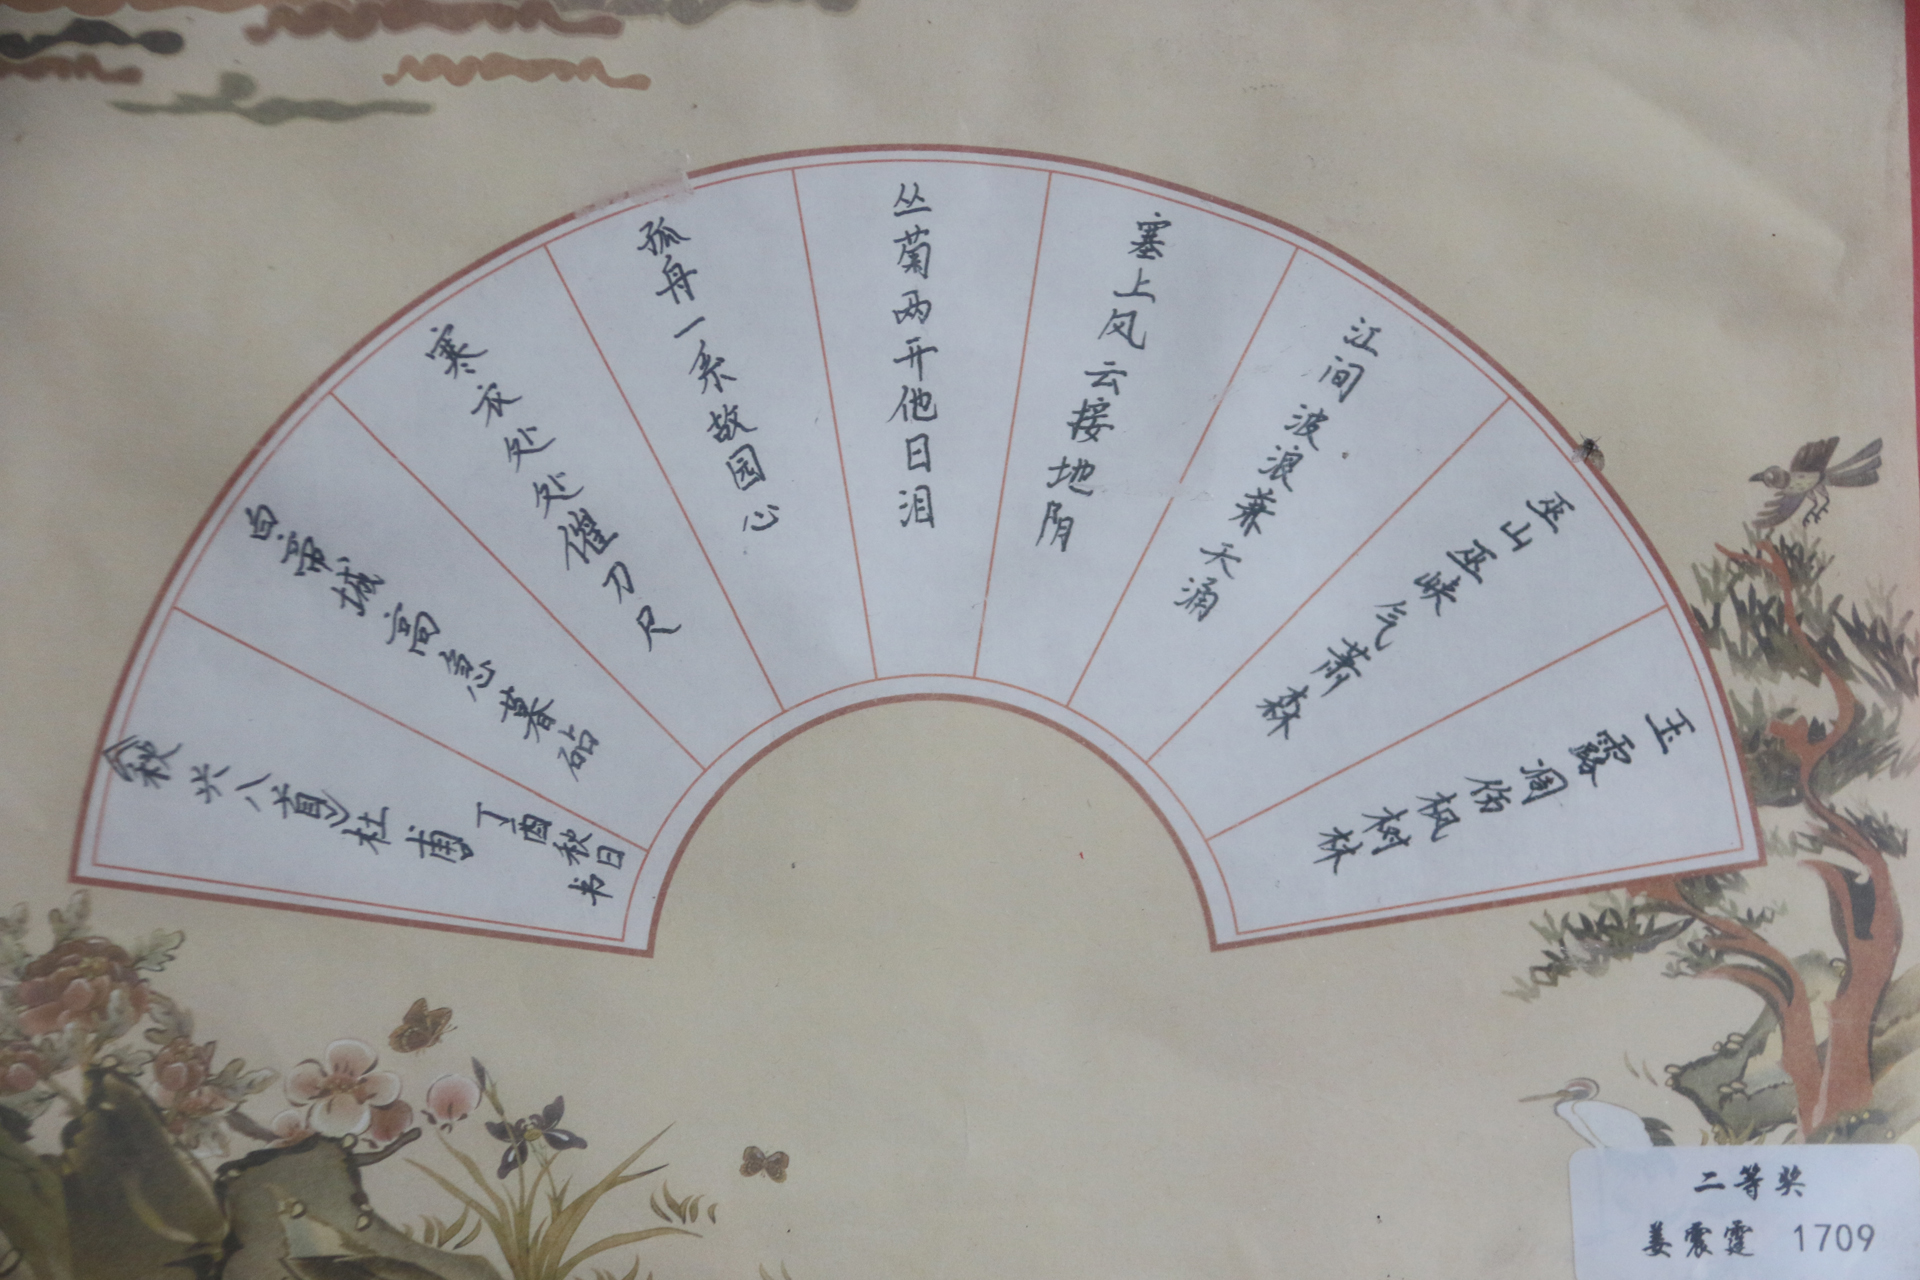 玉露凋伤枫树林
巫山巫峡气萧森
江间波浪兼天涌
塞上风云接地阴
丛菊两开他日泪
孤舟一系故园心
寒衣处处催刀尺
白帝城高急暮砧
《秋兴八首》杜甫
丁酉秋日书
二等奖
姜震霆 1709